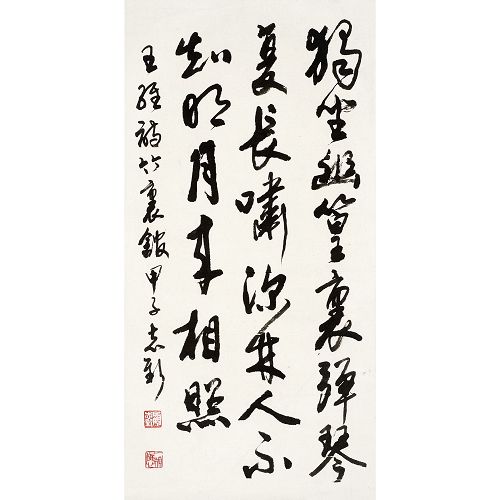 獨坐幽篁裏彈琴
復長嘯深林人不
知明月來相照
王維詩竹裏館甲子志新